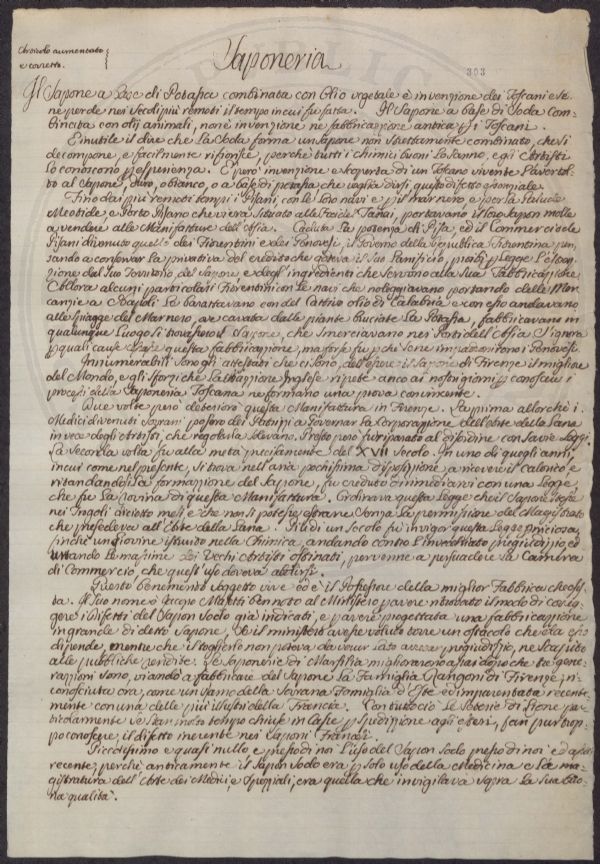 Articolo aumentato
e corretto.
Saponeria
303
Il Sapone a base di Potassa combinata con Olio vegetale è invenzione dei Toscani e se
ne perde nei Secoli più remoti il tempo in cui fu fatta. Il Sapone a base di Soda com-
binata con olij animali, non è invenzione ne fabbricazione antica Toscani.
È inutile il dire che la Soda forma un Sapone non strettamente combinato, che si
decompone, e facilmente perchè tutti i chimici buoni lo sanno, e gli Artisti
lo conoscono esperienza. E però invenzione e scoperta di un Toscano vivente
al Sapone, duro, o bianco, o a base di potassa che voglia dirsi questo difetto
Fino dai più remoti tempi i Pisani, con le loro navi e pel mar nero e per la Palude
Meotide e Porto Pisano che vi era situato alle foci del Tanai, portavano il loro Sapon molle
a vendere alle Manifatture dell'Asia. Caduta la potenza di Pisa, ed il Commercio de
Pisani divenuto quello dei Fiorentini e dei Genovesi, il Governo della Repubblica Fiorentina pen-
sando a conservar la privativa del credito che godeva il suo Panificio, proibì Legge
zione dal Suo Territorio del Sapone e degl'ingredienti che servono alla Sua Fabbricazione
Allora alcuni particolari Fiorentini con le navi che noleggiavano portando delle Mer-
canzie a Napoli le barattavano con del Cattivo olio di Calabria e con esso andavano
alle Spiagge del Marnero, ove cavata dalle piante bruciate la Potassa, fabbricavano in
qualunque Luogo si trovassero il Sapone, che smerciavano nei Porti dell'Asia S'ignora
quali cause questa fabbricazione, ma forse fu che se ne impadronirono i Genovesi.
Innumerabili sono gli attestati che ci sono, dell'essere il Sapone di Firenze il migliore
del Mondo, e gli sforzi che la Nazione Inglese ripete anco ai nostri giorni conoscere i
processi della Saponeria Toscana ne formano una prova convincente.
Due volte però deteriorò questa Manifattura in Firenze. La prima allorchè i
Medici divenuti Sovrani posero dei Patrizi a Governar la Corporazione dell'Arte della Lana
in vece degli Artisti, che regolarla dovevano. Presto però fu riparato al disordine con Savie Leggi.
La seconda volta fu alla metà precisamente del XVII Secolo. In uno di quegli anni,
in cui come nel presente, si trova nell'aria pochissima disposizione a ricevere il calorico e
ritardandosi la formazione del Sapone, fu creduto di rimediarvi con una Legge,
che fu la rovina di questa Manifattura. Ordinava questa Legge che il Sapone stesse
nei Trogoli diciotto mesi e che non si potesse estrarne senza la permissione del Magistrato
che presedeva all'Arte della Lana. Più di un Secolo fu in vigor questa Legge perniciosa,
finchè un Giovine istruito nella Chimica, andando contro l'invecchiato pregiudizio, ed
urtando le massime dei Vecchi Artisti ostinati, pervenne a persuadere la Camera
di Commercio, che quest'uso doveva
Questo benemerito Soggetto vive ed è il Possessore della miglior Fabbrica che
Il Suo nome è ben noto al Ministero pare aver ritrovato il modo di correg-
gere i difetti del Sapon Sodo già indicati, e pare aver progettata una fabbricazione
in grande di detto Sapone, se il ministero avesse voluto torre un ostacolo che da esso
dipende, mentre che il toglierlo non poteva da veun lato avere pregiudizio, ne scapito
alle pubbliche rendite. Le Saponerie di Marsilia migliorarono assai dopo che tre gene-
razioni sono, viando a fabbricare del Sapone la Famiglia Rangoni di Firenze, ri-
conosciuta ora, come un ramo della Sovrana Famiglia d'Este ed imparentata recente-
mente con una delle più illustri della Francia. Con tuttociò le Seterie di Lione par-
ticolarmente se stan molto tempo chiuse in Casse spedizione agli esteri, fan pur trop-
po conoscere, il difetto inerente nei Saponi Francesi.
Piccolissimo e quasi nullo è presso di noi l'uso del Sapon Sodo presso di noi è d'
recente, perchè anticamente il Sapon Sodo era solo uso della Medicina e la ma-
gistratura dell'Arte dei Medici, e Speziali, era quella che invigilava sopra la Sua buo-
na qualità.